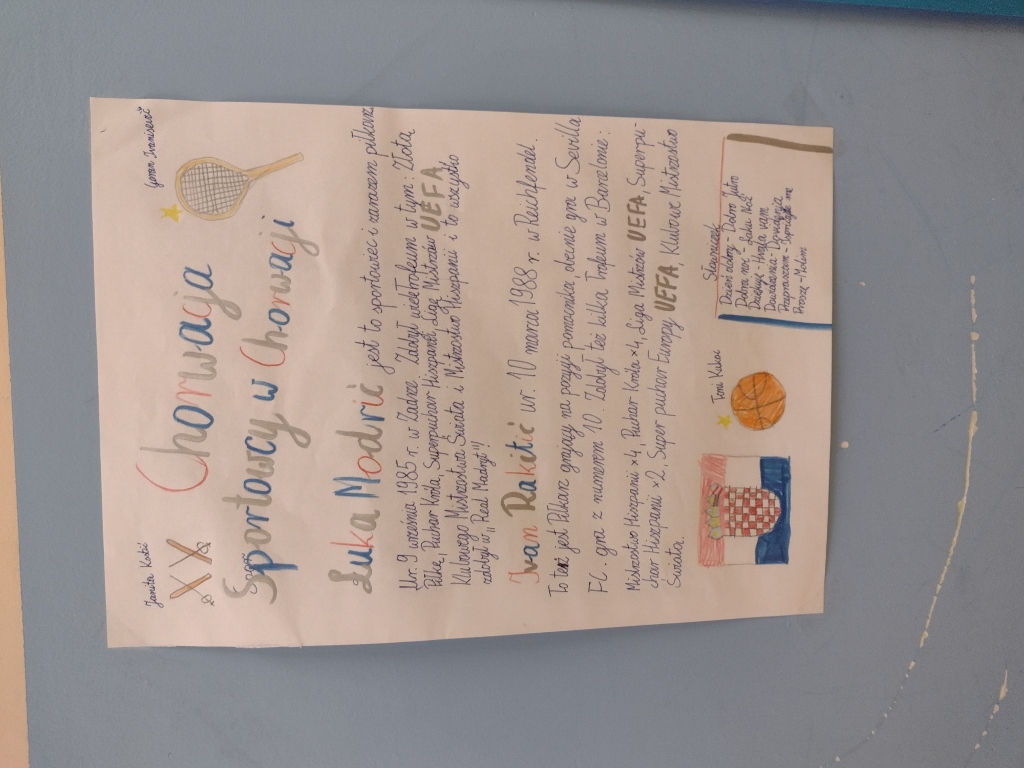 Janica Kostić
Goran Ivanisević
Chorwacja
Sportowcy w Chorwacji
Luka Modrić jest to sportowiec i zarazem piłkarz
Ur. 9 września 1985 r. w Zadrze. Zdobył wiele Trofeum w tym: Złota
Piłkę, Puchar Króla, Superpuchar Hiszpanii, Ligę Mistrzów UEFA,
Klubowego Mistrzostwa Świata i Mistrzostwo Hiszpanii i to wszystko
zdobył w ,,Real Madryt"!
Ivan Rakitić ur. 10 marca 1988 r. w Reichfendel.
To też jest Piłkarz grający na pozycji pomocnika obecnie gra w Sevilla
FC. gra z numerem 10. Zdobył też kilka Trofeum w Barcelonie:
Mistrzostwo Hiszpanii x4 Puchar Króla x4, Liga Mistrzów UEFA, Superpu-
char Hiszpanii x2, Super puchar Europy UEFA, Klubowe Mistrzostwo
Świata.
Toni Kukoc
Słowniczek
Dzień dobry - Dobro jutro
Dobra noc - Laku Noč
Dziękuję - Hvala vam
Dowidzenia -
Przepraszam -
Proszę - Molim